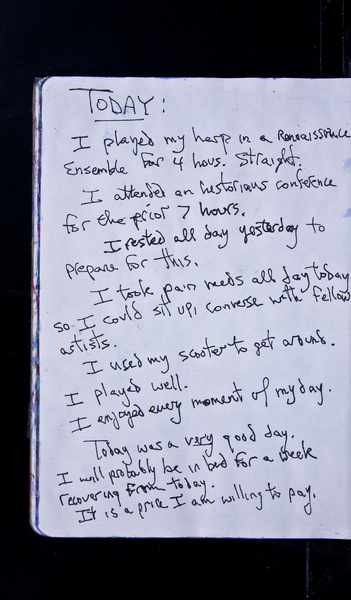 TODAY:
I played my harp in a Renaissance
Ensemble for 4 hours. Straight.
I attended an historians conference
for the prior 7 hours.
I rested all day yesterday to
prepare for this.
I took pain meds all day today
so I could sit up, converse with fellow
artists.
I used my scooter to get around.
I played well.
I enjoyed every moment of my day.
Today was a very good day.
I will probably be in bed for a week
recovering from today.
It is a price I am willing to pay.